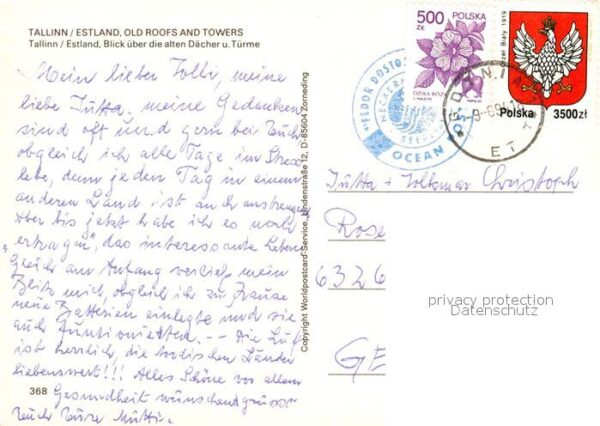 TALLINN / ESTLAND, OLD ROOFS AND TOWERS
Tallinn / Estland, Blick über die alten Dächer u. Türme
Mein lieber Volli, meine
liebe Jutta, meine Gedanken
sind oft und gern bei Euch
obgleich ich alle Tage im Stress
lebe, denn jeden Tag in einem
anderen Land ist auch anstrengend
aber bis jetzt habe ich es noch
"ertragen", das interessante Leben
Gleich am Anfang verließ mein
Blitz mich, obgleich ich zu Hause
neue Batterien einlegte und sie
auch funktionierten. -- Die Luft
ist herrlich, die nordischen Länder
liebenswert!!! Alles Schöne vor allem
Gesundheit wünschend grüsst
Euch Eure Mutti.
368
Copyright Worldpostcard-Service, Lindenstraße 12, D-85604 Zorneding
500
ZŁ
POLSKA
DZIKA RÓŻA
"FEDOR DOSTO
NECKERM
SEE
OCEAN
GDYNIA
-9-69
ET
1919
Polska 3500zł
Jutta + Volkmar Christoph
Rose
6326
GE
privacy protection
Datenschutz